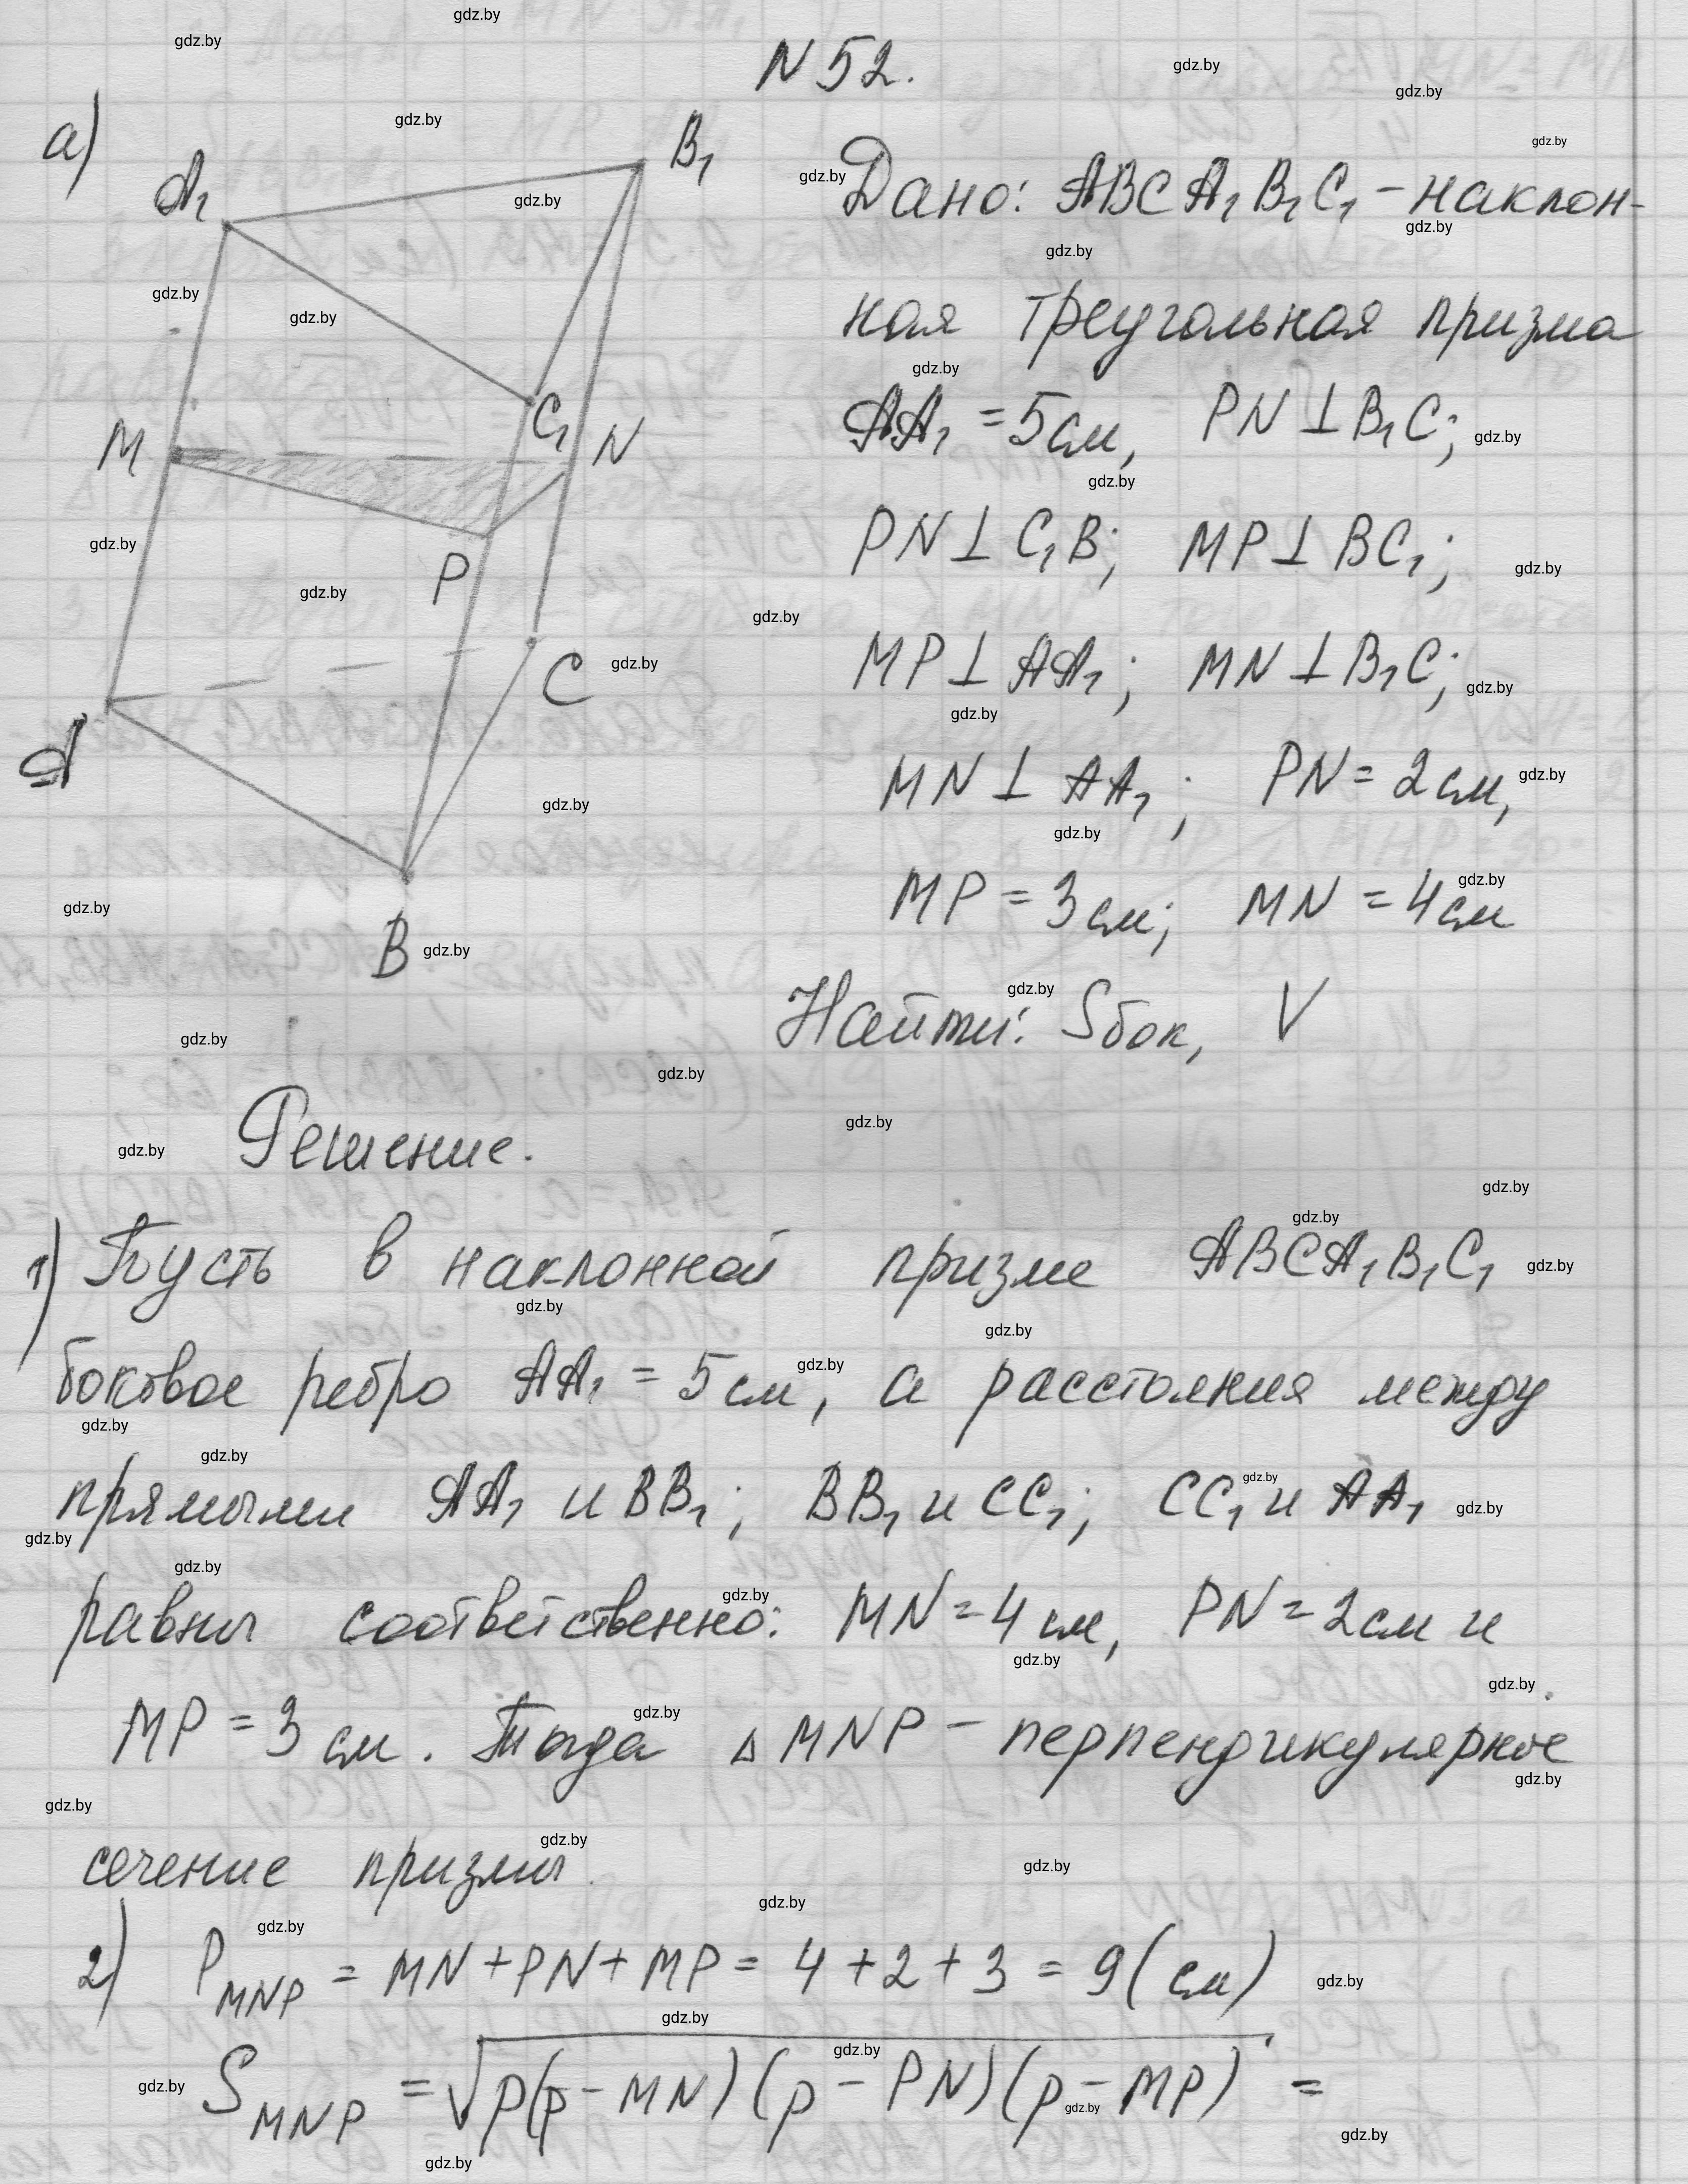 N 52.
а)
A₁
B₁
C₁
M
N
P
A
C
B
Дано: ABCA₁B₁C₁ - наклон-
ная треугольная призма
AA₁ = 5 см, PN ⊥ B₁C;
PN ⊥ C₁B; MP ⊥ BC₁;
MP ⊥ AA₁; MN ⊥ B₁C;
MN ⊥ AA₁; PN = 2 см,
MP = 3 см; MN = 4 см
Найти: Sбок, V
Решение.
1) Пусть в наклонной призме ABCA₁B₁C₁
боковое ребро AA₁ = 5 см, а расстояния между
прямыми AA₁ и BB₁; BB₁ и CC₁; CC₁ и AA₁
равны соответственно: MN = 4 см, PN = 2 см и
MP = 3 см. Тогда ▵ MNP - перпендикулярное
сечение призмы.
2) P_MNP = MN + PN + MP = 4 + 2 + 3 = 9 (см)
S_MNP = √p(p - MN)(p - PN)(p - MP) =
gdz.by